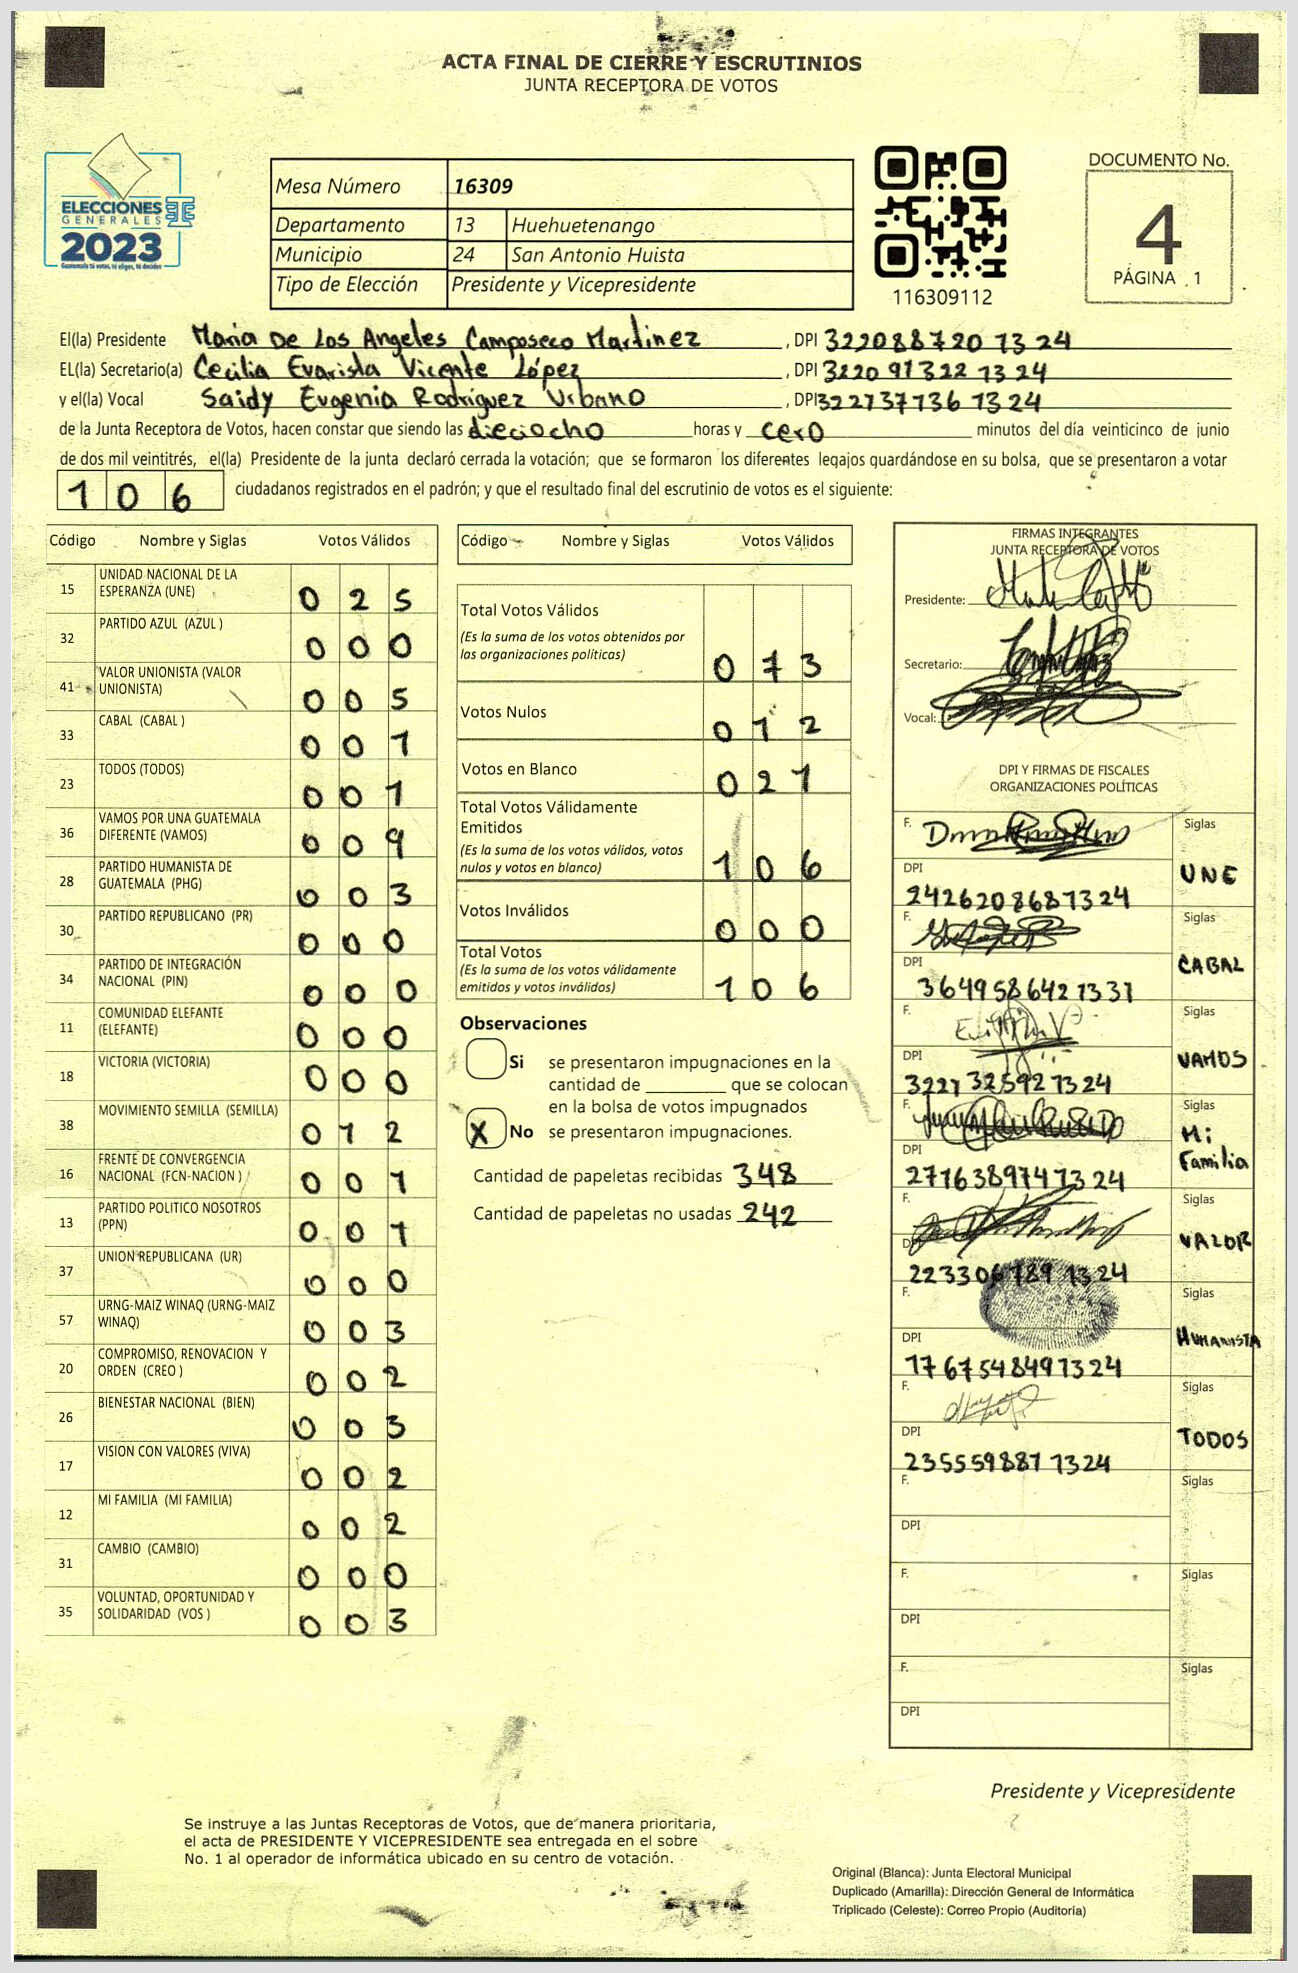 ACTA FINAL DE CIERRE Y ESCRUTINIOS
JUNTA RECEPTORA DE VOTOS
ELECCIONES
GENERALES
2023
Guatemala tú votas, tú eliges, tú decides
Mesa Número 16309
Departamento 13 Huehuetenango
Municipio 24 San Antonio Huista
Tipo de Elección Presidente y Vicepresidente
116309112
DOCUMENTO No.
4
PÁGINA 1
El(la) Presidente Maria De Los Angeles Camposeco Martinez, DPI 322088720 1324
EL(la) Secretario(a) Cecilia Evarista Vicente López, DPI 3220 91322 1324
y el(la) Vocal Saidy Eugenia Rodriguez Urbano, DPI 322737736 1324
de la Junta Receptora de Votos, hacen constar que siendo las dieciocho horas y cero minutos del día veinticinco de junio
de dos mil veintitrés, el(la) Presidente de la junta declaró cerrada la votación; que se formaron los diferentes legajos guardándose en su bolsa, que se presentaron a votar
106 ciudadanos registrados en el padrón; y que el resultado final del escrutinio de votos es el siguiente:
Código Nombre y Siglas Votos Válidos
15 UNIDAD NACIONAL DE LA
ESPERANZA (UNE) 0 2 5
32 PARTIDO AZUL (AZUL ) 0 0 0
41 VALOR UNIONISTA (VALOR
UNIONISTA) 0 0 5
33 CABAL (CABAL ) 0 0 1
23 TODOS (TODOS) 0 0 1
36 VAMOS POR UNA GUATEMALA
DIFERENTE (VAMOS) 0 0 9
28 PARTIDO HUMANISTA DE
GUATEMALA (PHG) 0 0 3
30 PARTIDO REPUBLICANO (PR) 0 0 0
34 PARTIDO DE INTEGRACIÓN
NACIONAL (PIN) 0 0 0
11 COMUNIDAD ELEFANTE
(ELEFANTE) 0 0 0
18 VICTORIA (VICTORIA) 0 0 0
38 MOVIMIENTO SEMILLA (SEMILLA) 0 1 2
16 FRENTE DE CONVERGENCIA
NACIONAL (FCN-NACION ) 0 0 1
13 PARTIDO POLITICO NOSOTROS
(PPN) 0 0 1
37 UNION REPUBLICANA (UR) 0 0 0
57 URNG-MAIZ WINAQ (URNG-MAIZ
WINAQ) 0 0 3
20 COMPROMISO, RENOVACION Y
ORDEN (CREO ) 0 0 2
26 BIENESTAR NACIONAL (BIEN) 0 0 3
17 VISION CON VALORES (VIVA) 0 0 2
12 MI FAMILIA (MI FAMILIA) 0 0 2
31 CAMBIO (CAMBIO) 0 0 0
35 VOLUNTAD, OPORTUNIDAD Y
SOLIDARIDAD (VOS ) 0 0 3
Código Nombre y Siglas Votos Válidos
Total Votos Válidos
(Es la suma de los votos obtenidos por
las organizaciones políticas) 0 7 3
Votos Nulos 0 1 2
Votos en Blanco 0 2 1
Total Votos Válidamente
Emitidos
(Es la suma de los votos válidos, votos
nulos y votos en blanco) 1 0 6
Votos Inválidos 0 0 0
Total Votos
(Es la suma de los votos válidamente
emitidos y votos inválidos) 1 0 6
Observaciones
Si se presentaron impugnaciones en la
cantidad de ________ que se colocan
en la bolsa de votos impugnados
X No se presentaron impugnaciones.
Cantidad de papeletas recibidas 348
Cantidad de papeletas no usadas 242
FIRMAS INTEGRANTES
JUNTA RECEPTORA DE VOTOS
Presidente:
Secretario:
Vocal:
DPI Y FIRMAS DE FISCALES
ORGANIZACIONES POLÍTICAS
F. Siglas
DPI UNE
2426208681324
F. Siglas
DPI CABAL
3649586421331
F. Siglas
DPI VAMOS
3221325921324
F. Siglas
DPI Mi Familia
2776389741324
F. Siglas
DPI VALOR
2233067891324
F. Siglas
DPI HUMANISTA
1767548491324
F. Siglas
DPI TODOS
2355598871324
F. Siglas
DPI
F. Siglas
DPI
F. Siglas
DPI
Presidente y Vicepresidente
Se instruye a las Juntas Receptoras de Votos, que de manera prioritaria,
el acta de PRESIDENTE Y VICEPRESIDENTE sea entregada en el sobre
No. 1 al operador de informática ubicado en su centro de votación.
Original (Blanca): Junta Electoral Municipal
Duplicado (Amarilla): Dirección General de Informática
Triplicado (Celeste): Correo Propio (Auditoria)